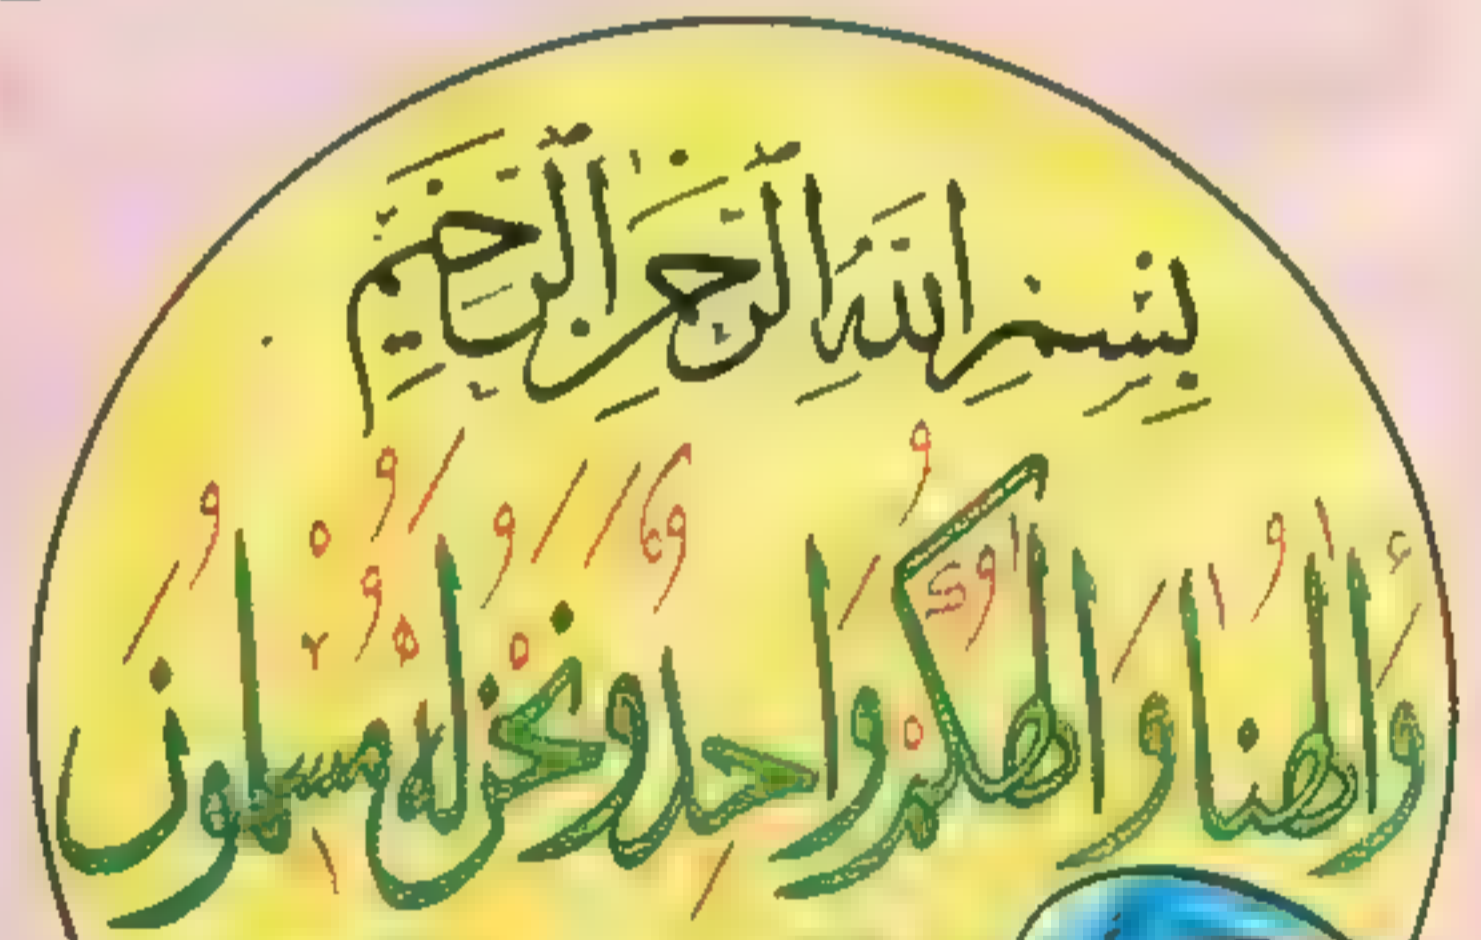 بِسْمِ اللهِ الرَّحْمٰنِ الرَّحِيْمِ
وَاِلٰهُنَا وَاِلٰهُكُمْ وَاحِدٌ وَّنَحْنُ لَهٗ مُسْلِمُوْنَ